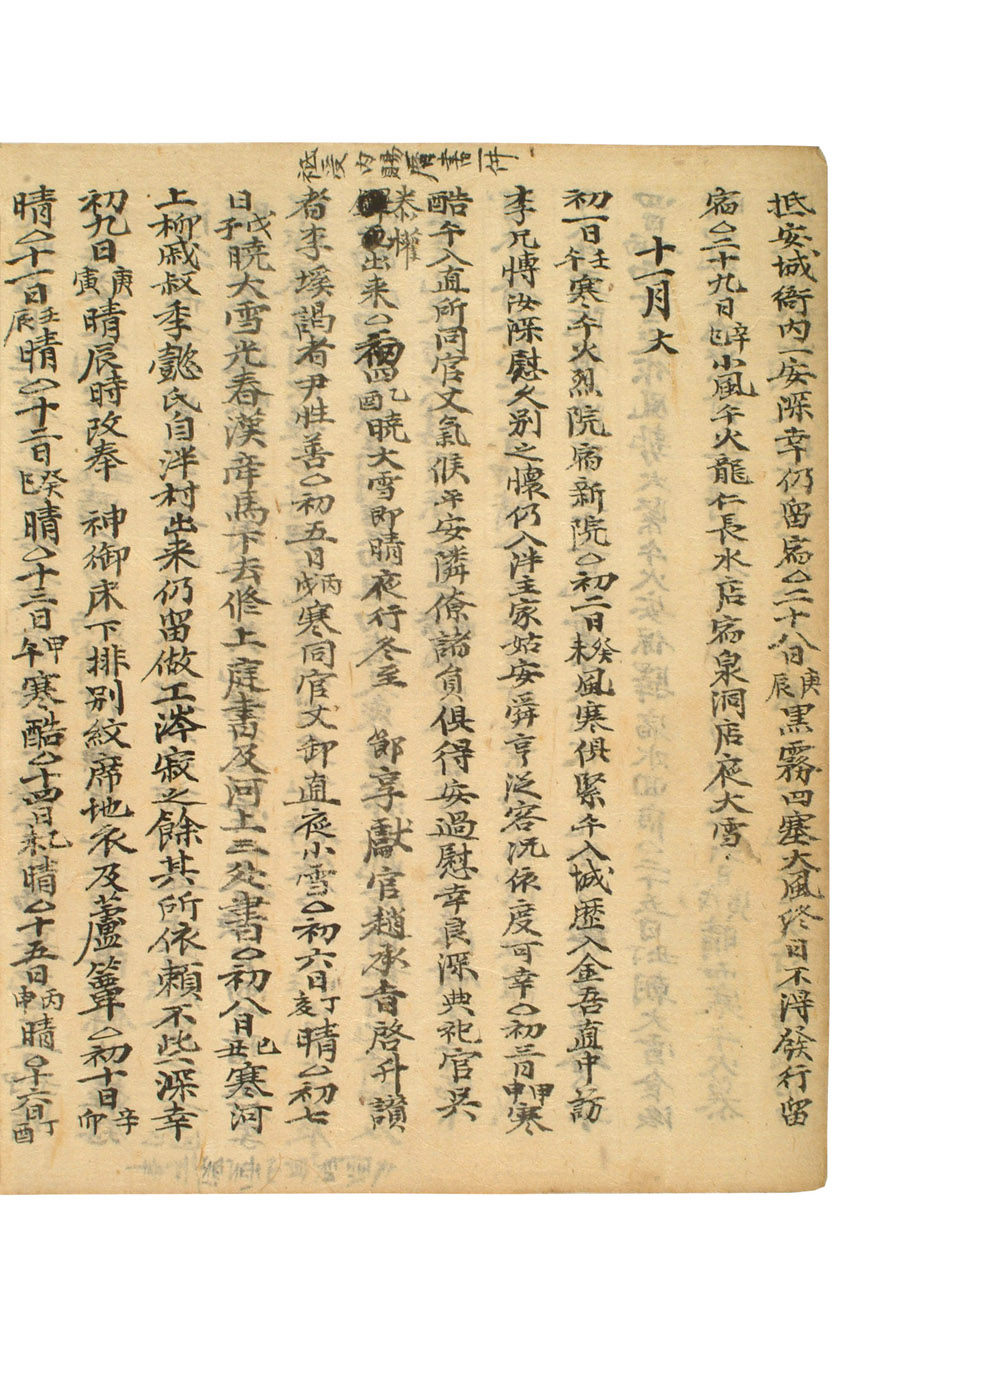 抵安城衙内一安深幸仍留宿△二十八日庚辰黑霧四塞大風終日不得發行留
宿△二十九日辛巳小風午火龍仁長水店宿泉洞店夜大雪
十一月大
初一日壬午寒午火烈院宿新院△初二日癸未風寒俱緊午入城歷入金吾直中訪
李兄愽汝深慰久别之懷仍入泮主家姑安舜亨泛客况依度可幸△初三日甲申寒
酷午入直所同官丈氣候平安隣僚諸負俱得安過慰幸良深典祀官吳
泰權出来△初四乙酉曉大雪即晴夜行冬至 節享獻官趙承旨啓升讃
者李墣謁者尹性善△初五日丙戌寒同官丈卸直夜小雪△初六日丁亥晴△初七
日戊子曉大雪光春漢幸馬下去修上庭書及河上三处書△初八日己丑寒河
上柳戚叔季懿氏自泮村出来仍留做工涔寂之餘其所依賴不些深幸
初九日庚寅晴辰時改奉 神御床下排别紋席地衣及蘆簟△初十日辛卯
晴△十一日壬辰晴△十二日癸巳晴△十三日甲午寒酷△十四日乙未晴△十五日丙申晴△十六日丁酉
祗受内賜曆書一件